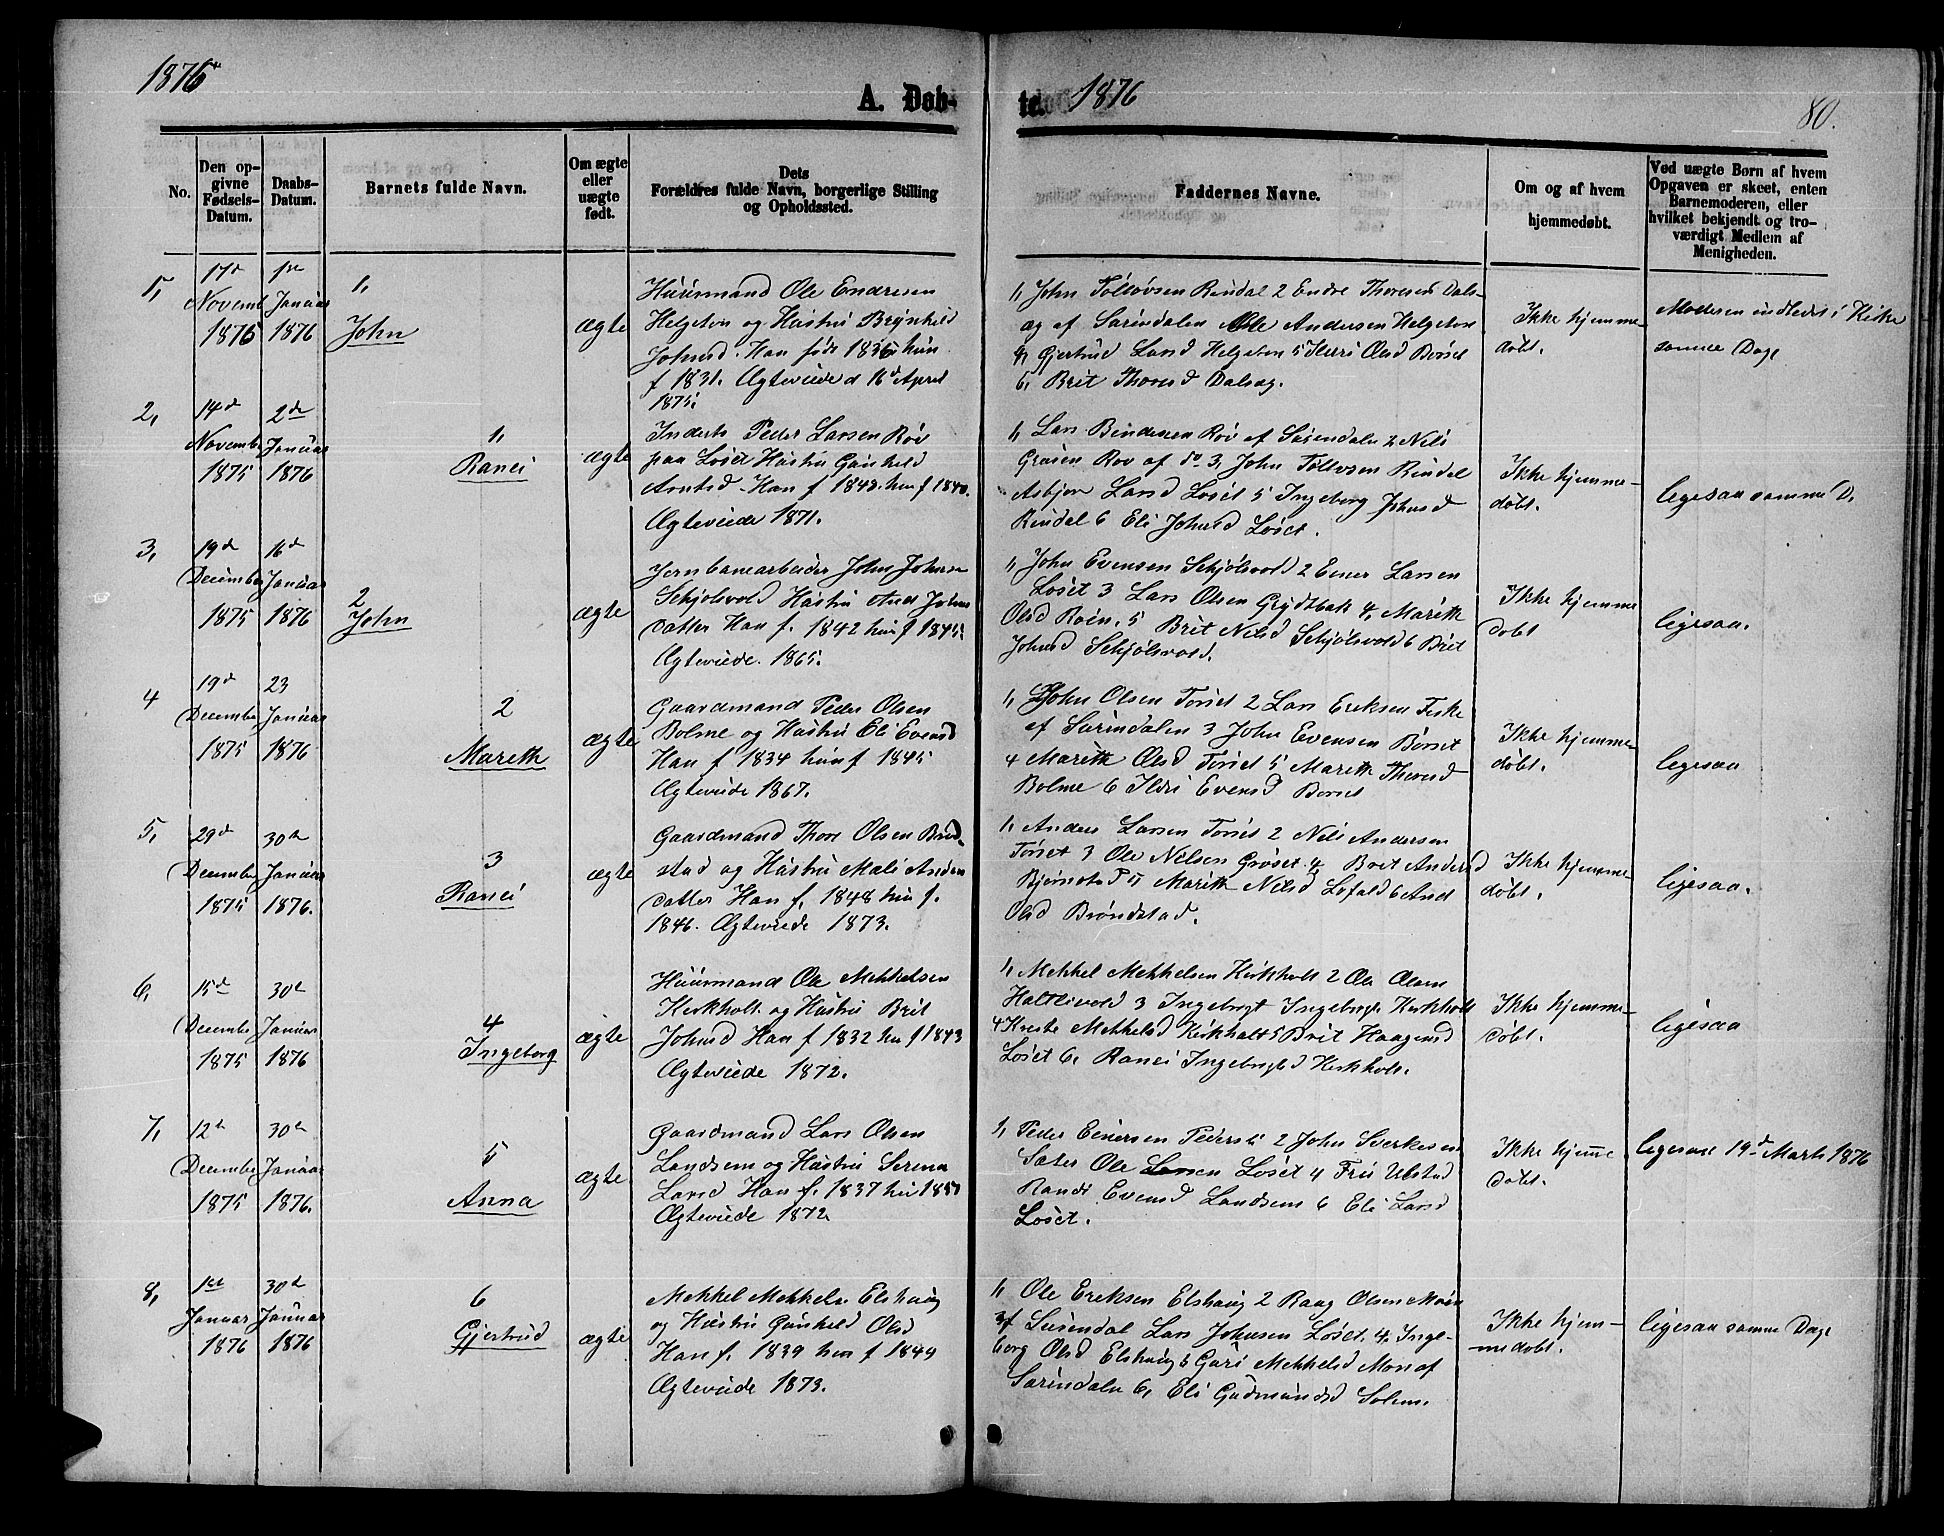 1876
A. Døb-
te.
1876
80.
No.
Den op-
givne
Fødsels-
Datum.
Daabs-
Datum.
Barnets fulde Navn.
Om ægte
eller
uægte
født.
Dets
Forældres fulde Navn, borgerlige Stilling
og Opholdssted.
Faddernes Navne.
Om og af hvem
hjemmedøbt.
Ved uægte Børn af hvem
Opgaven er skeet, enten
Barnemoderen, eller
hvilket bekjendt og tro-
værdigt Medlem af
Menigheden.
1,
17d
Novemb
1875
1ste
Januar
1876
1,
John
ægte
Huusmand Ole Endresen
Helgeton og Hustru Brynhild
Johnsd. Han født 1836 hun
f 1831. Ægteviede d 16d April
1875.
1, John Tollovsen Rindal 2 Endre Thoresen Dals-
æg af Surindalen Ole Andersen Helgeton
4, Gjertrud Larsd Helgeton 5 Ildri Olsd Børset
6, Brit Thoresd Dalsæg.
Ikke hjemme-
døbt.
Moderen indledet i Kirke
samme Dage
2,
14d
Novemb
1875
2de
Januar
1876
1,
Ranei
ægte
Inderts Peder Larsen Røv
paa Løset Hustru Gunhild
Arntsd. Han f 1848. hun f 1840.
Ægteviede 1871.
1, Lars Bendixen Røv af Surendalen 2 Nils
Grøsen Rov af do 3, John Tollovsen Rindal
Asbjørn Larsd Løset 5 Ingeborg Johnsd
Rindal 6 Eli Johnsd Løset.
Ikke hjemme-
døbt.
ligesaa samme D.
3,
19d
December
1875
16d
Januar
1876
2
John
ægte
Jernbanearbeider John Johnsen
Schjølsvold Hustru And Johns
datter Han f. 1842 hun f 1845.
Ægteviede. 1865.
1, John Evensen Schjølsvold 2 Einer Larsen
Løset 3 Lars Olsen Grydtbak 4, Marith
Olsd Røen. 5 Brit Nilsd Schjølsvold 6 Brit
Johnsd Schjølsvold.
Ikke hjemme
døbt
ligesaa.
4
19d
December
1875
23
Januar
1876
2
Marith
ægte
Gaardmand Peder Olsen
Bolme og Hustru Eli Evensd
Han f 1834 hun f 1845
Ægteviede 1867.
1, John Olsen Torset 2 Lars Eriksen Fiske
af Surindalen 3 John Evensen Børset
4 Marith Olsd Torset 5 Marith Thoresd
Bolme 6 Ildri Evensd Børset
Ikke hjemme-
døbt.
ligesaa
5,
29d
December
1875
30te
Januar
1876.
3
Ranei
ægte
Gaardmand Thore Olsen Brød-
stad og Hustru Mali Anders
datter Han f. 1848 hun f.
1846. Ægteviede 1873.
1, Anders Larsen Torset 2 Nils Andersen
Torset 3 Ole Nilsen Grøset 4 Brit Andersd
Bjørnstad 5 Marith Nilsd Lofald 6 And
Olsd Brøndstad.
Ikke hjemme-
døbt.
ligesaa.
6,
15d
December
1875
30te
Januar
1876
4
Ingeborg
ægte
Huusmand Ole Mekkelsen
Kirkholt og Hustru Brit
Johnsd Han f 1832 hu f 1843
Ægteviede 1872.
1, Mekkel Mekkelsen Kirkholt 2 Ole Olsen
Haltlivold 3 Ingebrigt Ingebrigts Kirkholt
4 Kirste Mekkelsd Kirkholt 5 Brit Haagensd
Løset 6, Ranei Ingebrigtsd Kirkholt.
Ikke hjemme-
døbt.
ligesaa
7,
12te
December
1875
30te
Januar
1876.
5
Anna
ægte
Gaardmand Lars Olsen
Landsem og Hustru Serena
Larsd Han f. 1837 hu 1850
Ægteviede 1872
1, Peder Einersen 2 John Sverkesen
Sæter Ole Larsen Løset 4 Fru Ulstad
Randi Evensd Landsem 6 Eli Larsd
Løset.
Ikke hjemme
døbt.
ligesaa 19d Marts 1876
8,
1ste
Januar
1876
30te
Januar
1876
6
Gjertrud
ægte
Mekkel Mekkels. Elshaug
og Hustru Gunhild Olsd
Han f. 1839 hun f 1849
Ægteviede 1873.
1, Ole Eriksen Elshaug 2 Raag Olsen Moen
3 af Surendal Lars Johnsen Løset 4, Inge-
borg Olsd Elshaug 5 Guri Mekkelsd Moen af
Surindalen 6, Eli Gudmundsd Solem.
Ikke hjem-
medøbt.
ligesaa samme Dage